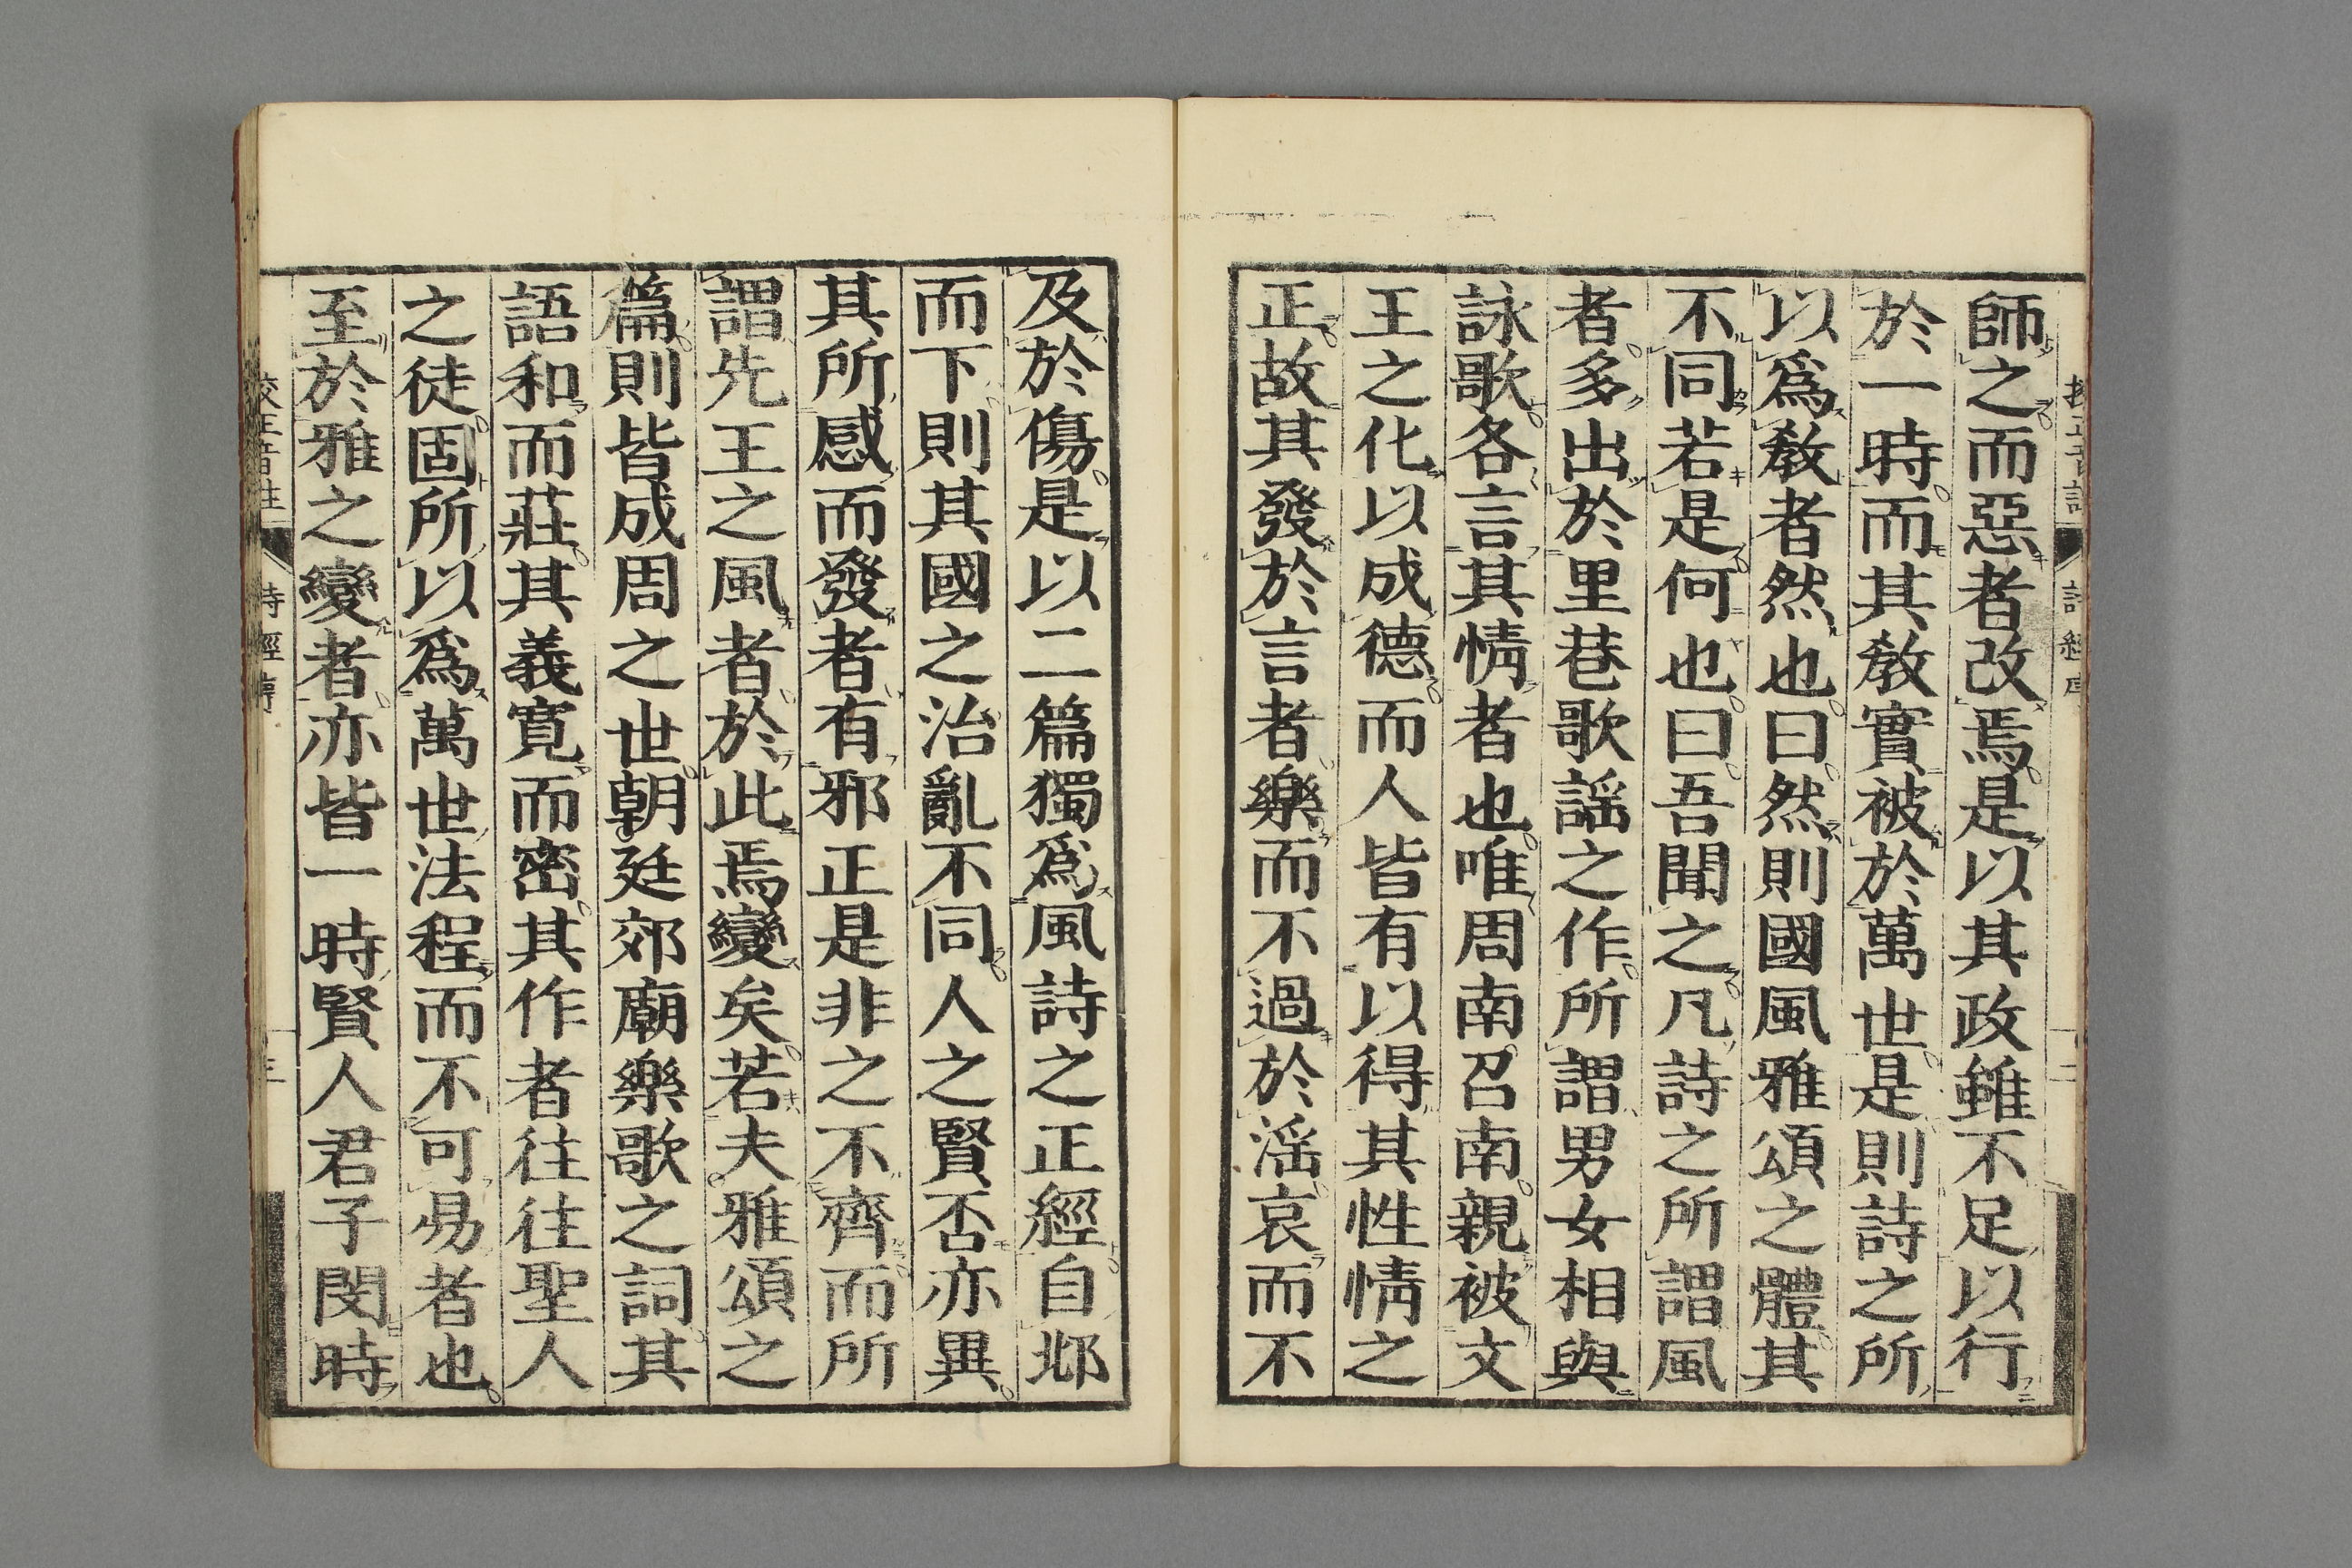 師之而惡者改焉是以其政雖不足以行
於一時而其教實被於萬世是則詩之所
以爲教者然也曰然則國風雅頌之體其
不同若是何也曰吾聞之凡詩之所謂風
者多出於里巷歌謡之作所謂男女相與
詠歌各言其情者也唯周南召南親被文
王之化以成德而人皆有以得其性情之
正故其發於言者樂而不過於淫哀而不
及於傷是以二篇獨爲風詩之正經自邶
而下則其國之治亂不同人之賢否亦異
其所感而發者有邪正是非之不齊而所
謂先王之風者於此焉變矣若夫雅頌之
篇則皆成周之世朝廷郊廟樂歌之詞其
語和而莊其義寛而密其作者往往聖人
之徒固所以爲萬世法程而不可易者也
至於雅之變者亦皆一時賢人君子閔時
校正音註 詩經